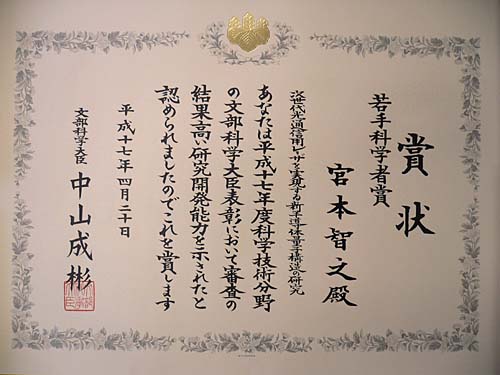 賞状
若手科学者賞
宮本智之殿
次世代光通信用レーザを実現する新半導体量子構造の研究
あなたは平成十七年度科学技術分野
の文部科学大臣表彰において審査の
結果高い研究開発能力を示されたと
認められましたのでこれを賞します
平成十七年四月二十日
文部科学大臣 中山成彬